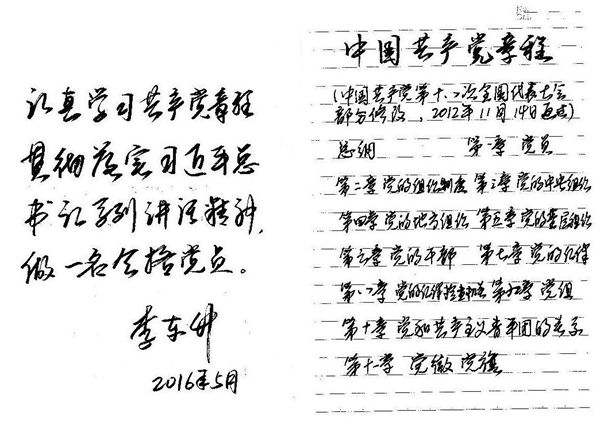 认真学习共产党章程
贯彻落实习近平总
书记系列讲话精神,
做一名合格党员。
李东升
2016年5月
中国共产党章程
(中国共产党第十八次全国代表大会
部分修改,2012年11月14日通过)
总纲 第一章 党员
第二章 党的组织制度 第三章 党的中央组织
第四章 党的地方组织 第五章 党的基层组织
第六章 党的干部 第七章 党的纪律
第八章 党的纪律检查机关 第九章 党组
第十章 党和共产主义青年团的关系
第十一章 党徽党旗